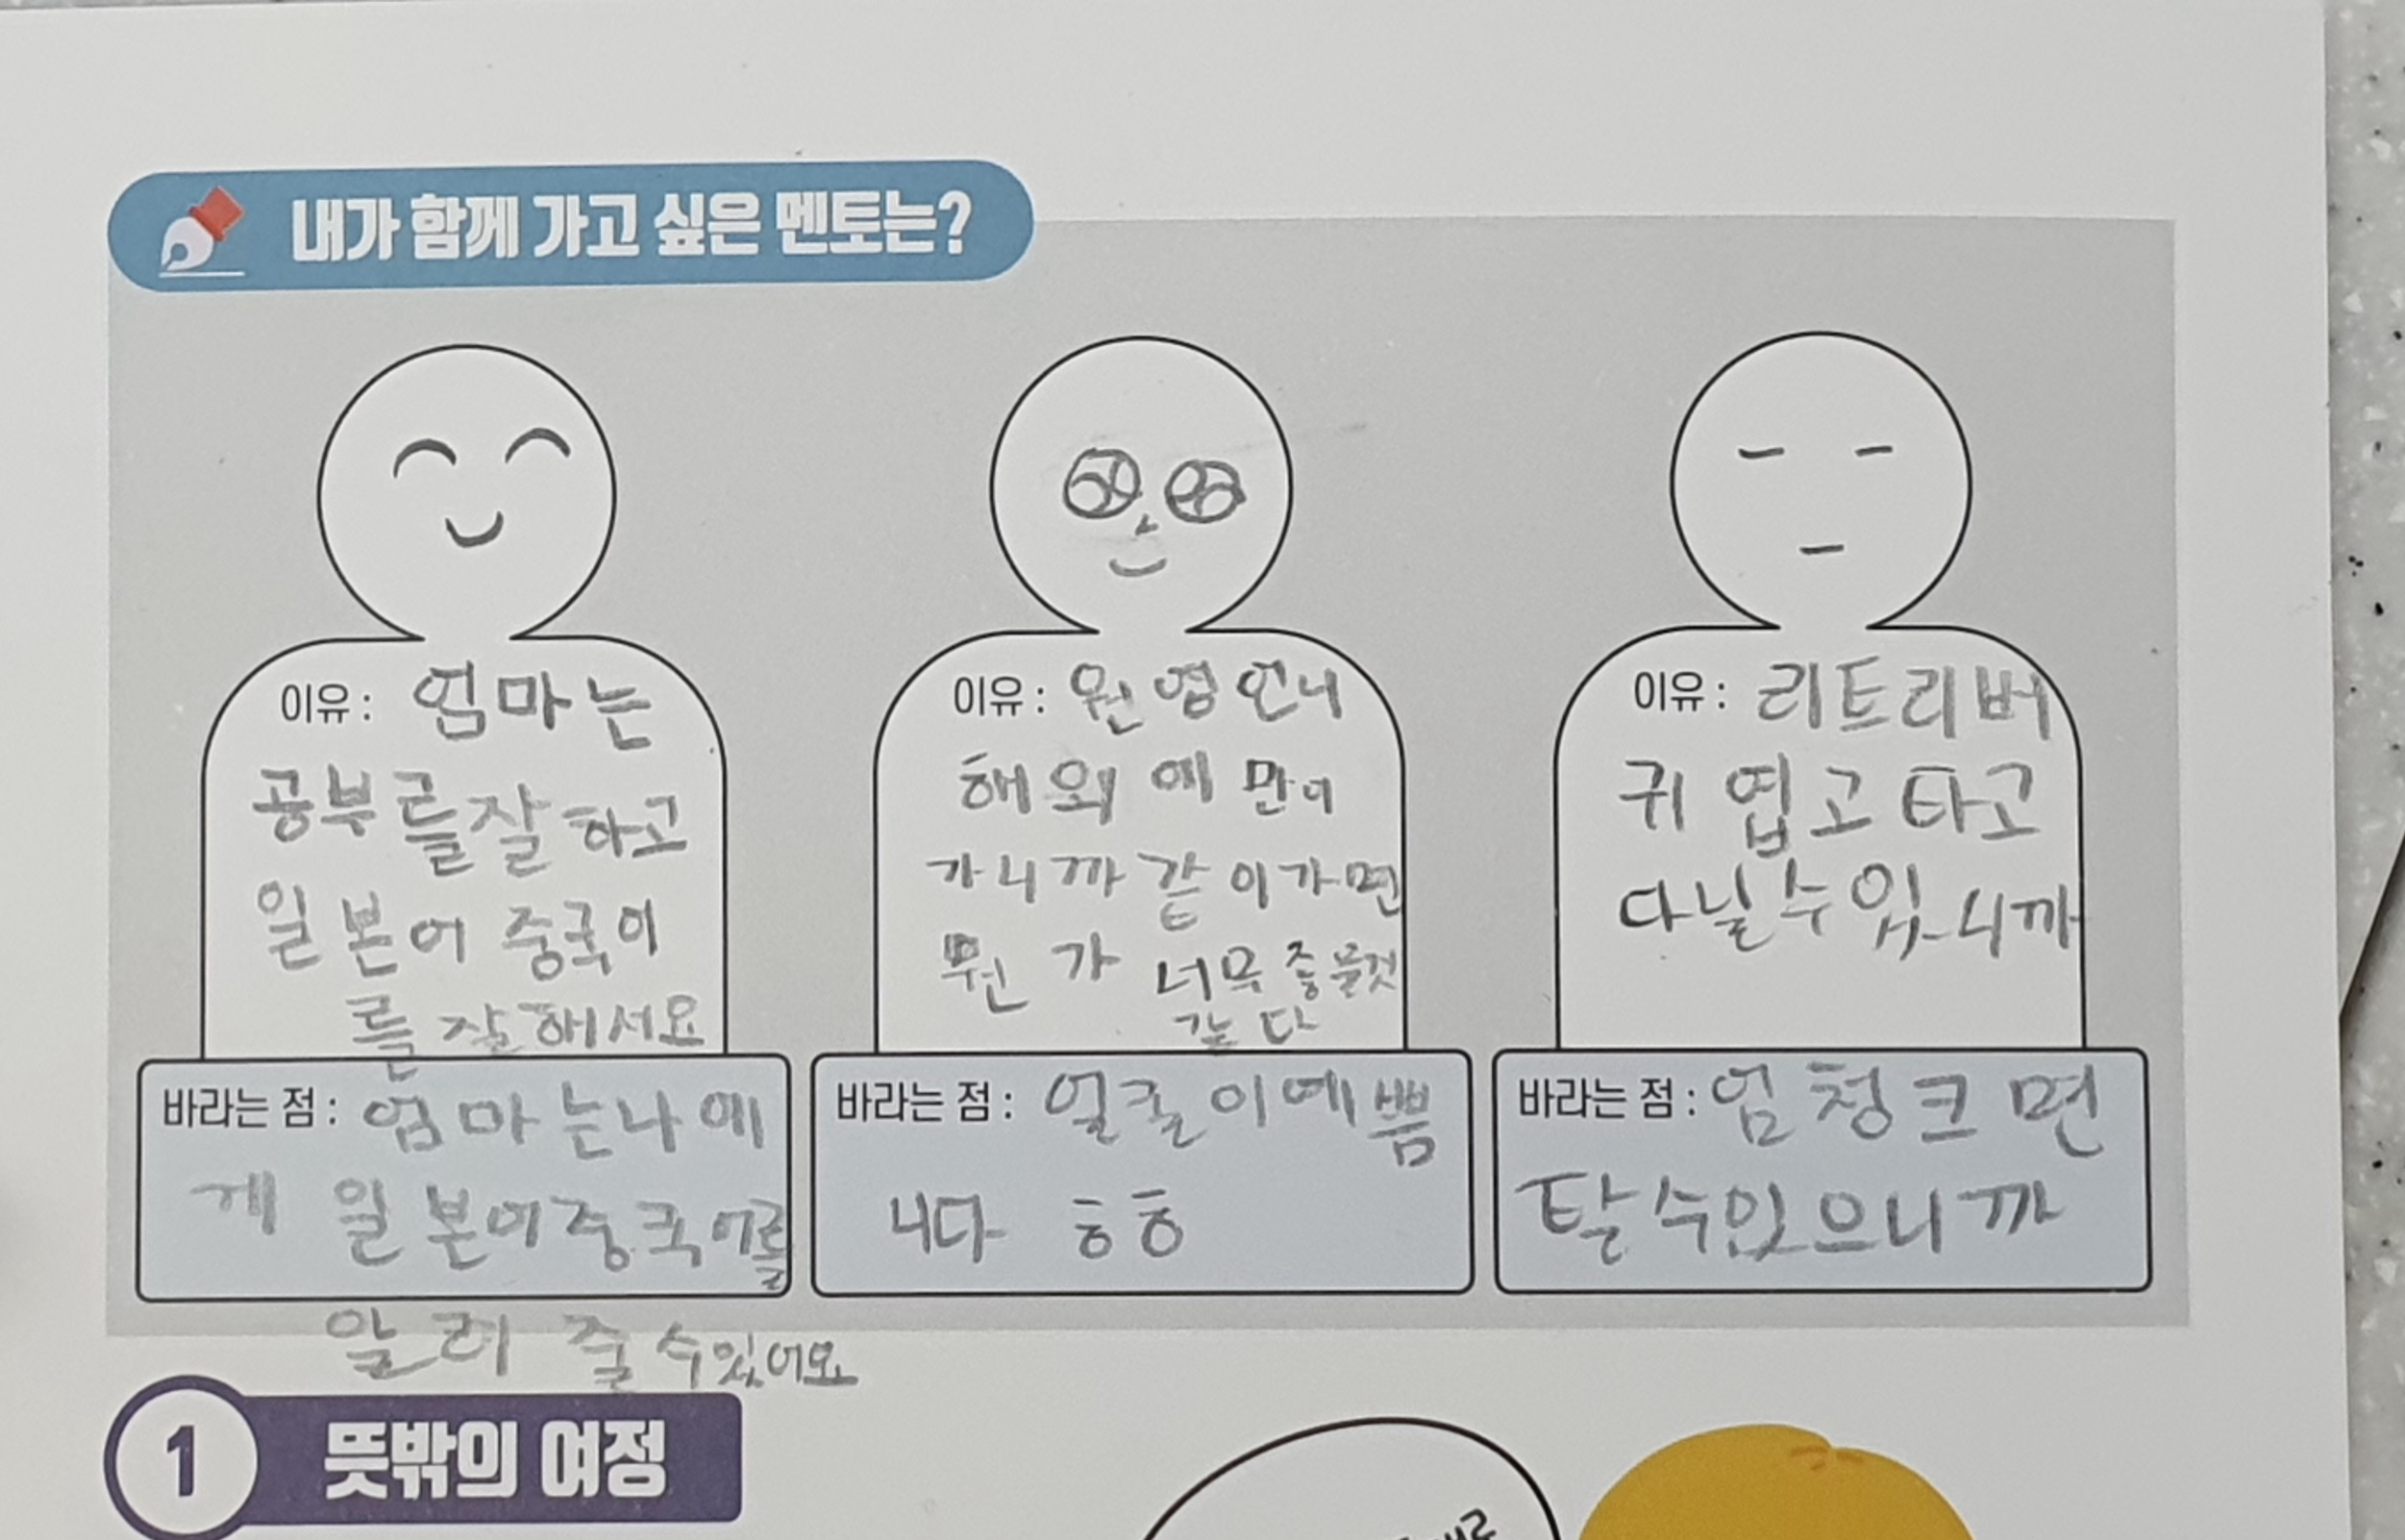 내가 함께 가고 싶은 멘토는?
이유 : 엄마는
공부를잘하고
일본어 중국어
를 잘해서요
바라는 점 : 엄마는나에
게 일본어중국어를
알려 줄 수있어요
이유 : 원영언니
해외에 만이
가니까 같이가면
뭔가 너무 좋을것
같다
바라는 점 : 얼굴이예쁨
니다 ㅎㅎ
이유 : 리트리버
귀엽고 타고
다닐수있니까
바라는 점 : 엄청크면
탈수있으니까
1 뜻밖의 여정